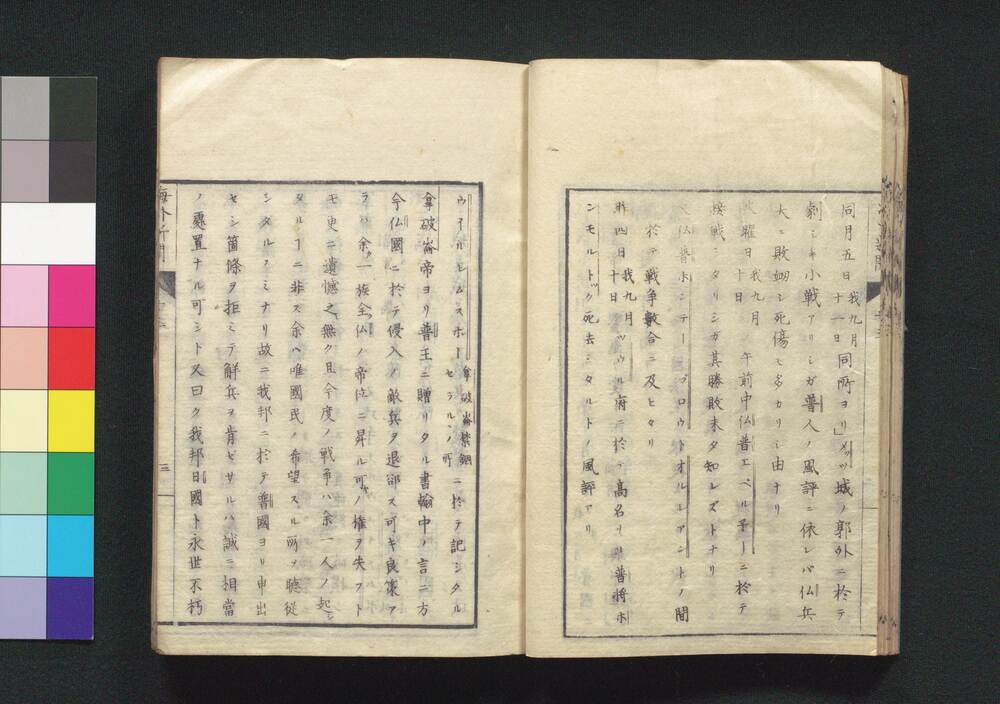 同月五日我九月十一日同所ヨリ」メッツ城ノ郭外ニ於テ
劇シキ小戦アリシガ普人ノ風評ニ依レバ仏兵
大ニ敗衂シ死傷モ多カリシ由ナリ
火曜日我九月十日ノ午前中仏普エベル子ーニ於テ
接戦シタリシガ其勝敗未タ知レズトナリ
仏普ホンテー ブロウトオルレアントノ間
於テ戦争數合ニ及ヒタリ
昨四日我九月十日ツウル府ニ於テ高名ナリシ普将ホ
ンモルトク死去シタルトノ風評アリ
ウイルヘルムスホー拿破崙禁錮セラルヽノ所ニ於テ記シタル
拿破崙帝ヨリ普王ニ贈リタル書翰中ノ言ニ方
今仏國ニ於テ侵入ノ敵兵ヲ退卻ス可キ良策ア
ラハ余ノ一族全ク仏ノ帝位ニ昇ル可キノ權ヲ失フト
モ更ニ遺憾之無ク且今度ノ戦争ハ余一人ノ起シ
タルコニ非ス余ハ唯國民ノ希望スル所ヲ聴従
シタルノミナリ故ニ我邦ニ於テ普國ヨリ申出
セシ箇條ヲ拒ミテ解兵ヲ肯ゼサルハ誠ニ相當
ノ處置ナル可シト又曰ク我邦日國ト永世不朽
海外新聞
三